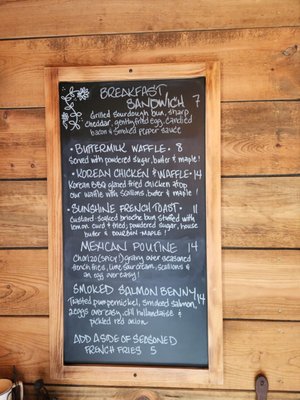 BREAKFAST
SANDWICH 7
Grilled Sourdough bun, sharp
cheddar, gently fried egg, candied
bacon & smoked pepper sauce
• BUTTERMILK WAFFLE • 8
Served with powdered sugar, butter & maple!
• KOREAN CHICKEN & WAFFLE • 14
Korean BBQ glazed fried chicken atop
our waffle with scallions, butter & maple!
• SUNSHINE FRENCH TOAST • 11
Custard soaked brioche bun stuffed with
lemon curd & fried, powdered sugar, house
butter & BOURBON MAPLE!
MEXICAN POUTINE 14
Chorizo (spicy!) gravy over seasoned
french fries, lime sour cream, scallions &
an egg over easy!
SMOKED SALMON BENNY 14
Toasted pumpernickel, smoked salmon,
2 eggs over easy, dill hollandaise &
pickled red onion
ADD A SIDE OF SEASONED
FRENCH FRIES 5